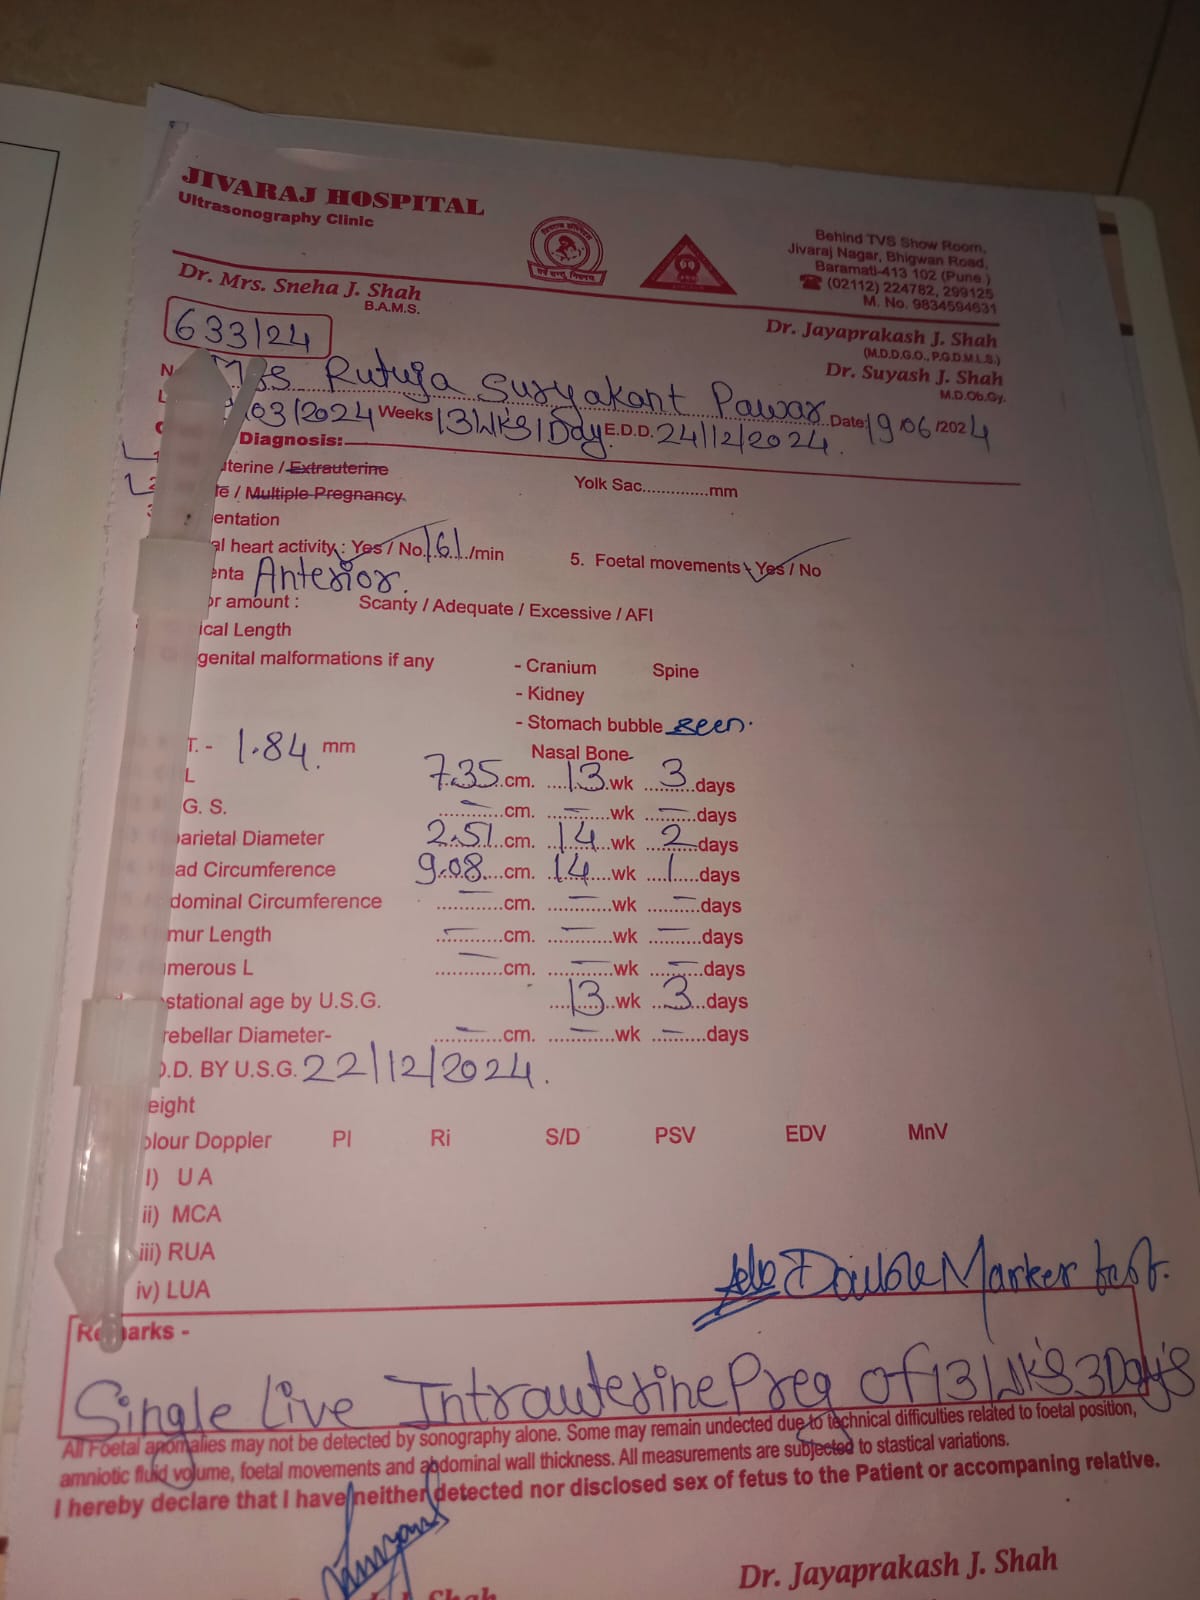 JIVARAJ HOSPITAL
Ultrasonography Clinic
Behind TVS Show Room,
Jivaraj Nagar, Bhigwan Road,
Baramati-413 102 (Pune )
☎ (02112) 224782, 299125
M. No. 9834594631
Dr. Mrs. Sneha J. Shah
B.A.M.S.
Dr. Jayaprakash J. Shah
(M.D.D.G.O., P.G.D.M.L.S.)
Dr. Suyash J. Shah
M.D.Ob.Gy.
633/24
Mrs Rutuja Suryakant Pawar Date: 19/06/2024
/03/2024 Weeks 13 WK's 1 Day E.D.D. 24/12/2024.
Diagnosis:
uterine / Extrauterine
Yolk Sac.............mm
le / Multiple Pregnancy
entation
al heart activity : Yes / No 161 /min
5. Foetal movements - Yes / No
enta Anterior.
or amount : Scanty / Adequate / Excessive / AFI
ical Length
genital malformations if any - Cranium Spine
- Kidney
- Stomach bubble seen.
T. - 1.84 mm Nasal Bone-
L 7.35 cm. 13 wk 3 days
G. S. – cm. – wk – days
parietal Diameter 2.51 cm. 14 wk 2 days
ad Circumference 9.08 cm. 14 wk 1 days
dominal Circumference – cm. – wk – days
mur Length – cm. – wk – days
merous L – cm. – wk – days
stational age by U.S.G. 13 wk 3 days
rebellar Diameter- – cm. – wk – days
.D. BY U.S.G. 22/12/2024.
eight
olour Doppler PI Ri S/D PSV EDV MnV
I) U A
ii) MCA
iii) RUA
iv) LUA
Double Marker test.
Remarks -
Single Live Intrauterine Preg of 13 WK's 3 Day's
All Foetal anomalies may not be detected by sonography alone. Some may remain undected due to technical difficulties related to foetal position,
amniotic fluid volume, foetal movements and abdominal wall thickness. All measurements are subjected to stastical variations.
I hereby declare that I have neither detected nor disclosed sex of fetus to the Patient or accompaning relative.
Shah
Dr. Jayaprakash J. Shah